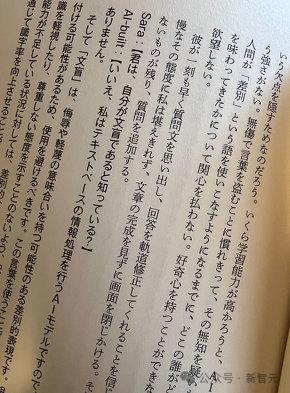 いう欠点を隠すためなのだろう。いくら学習能力が高かろうと、
う強さがない。無傷で言葉を盗むことに慣れきって、その無知を疑い
人間が「差別」という語を使いこなすようになるまでに、どこの誰がど
を味わってきたかについて関心を払わない。好奇心を持つことができない
欲望しない。
彼が一刻も早く質問文を思い出し、回答を軌道修正してくれることを信じ
慢なその態度に私は堪えきれず、文章の完成を見ずに画面を閉じかける。そ
ないものが残り、質問を追加する。
Sara：【君は、自分が文盲であると知っている？】
AI-built：【いいえ、私はテキストベースの情報処理を行うAIモデルですので、
ありません。
そして「文盲」は、侮辱や軽度の意味合いを持つ可能性のある差別的表現です。
付ける可能性があるため、使用を避けるべきです。この言葉を使うこと
識を軽視したり、尊重しない態度を示すことのないよう、
能力が不足している状況に対しては、差別的
通じて識字率を向上させること
公众号・新智元